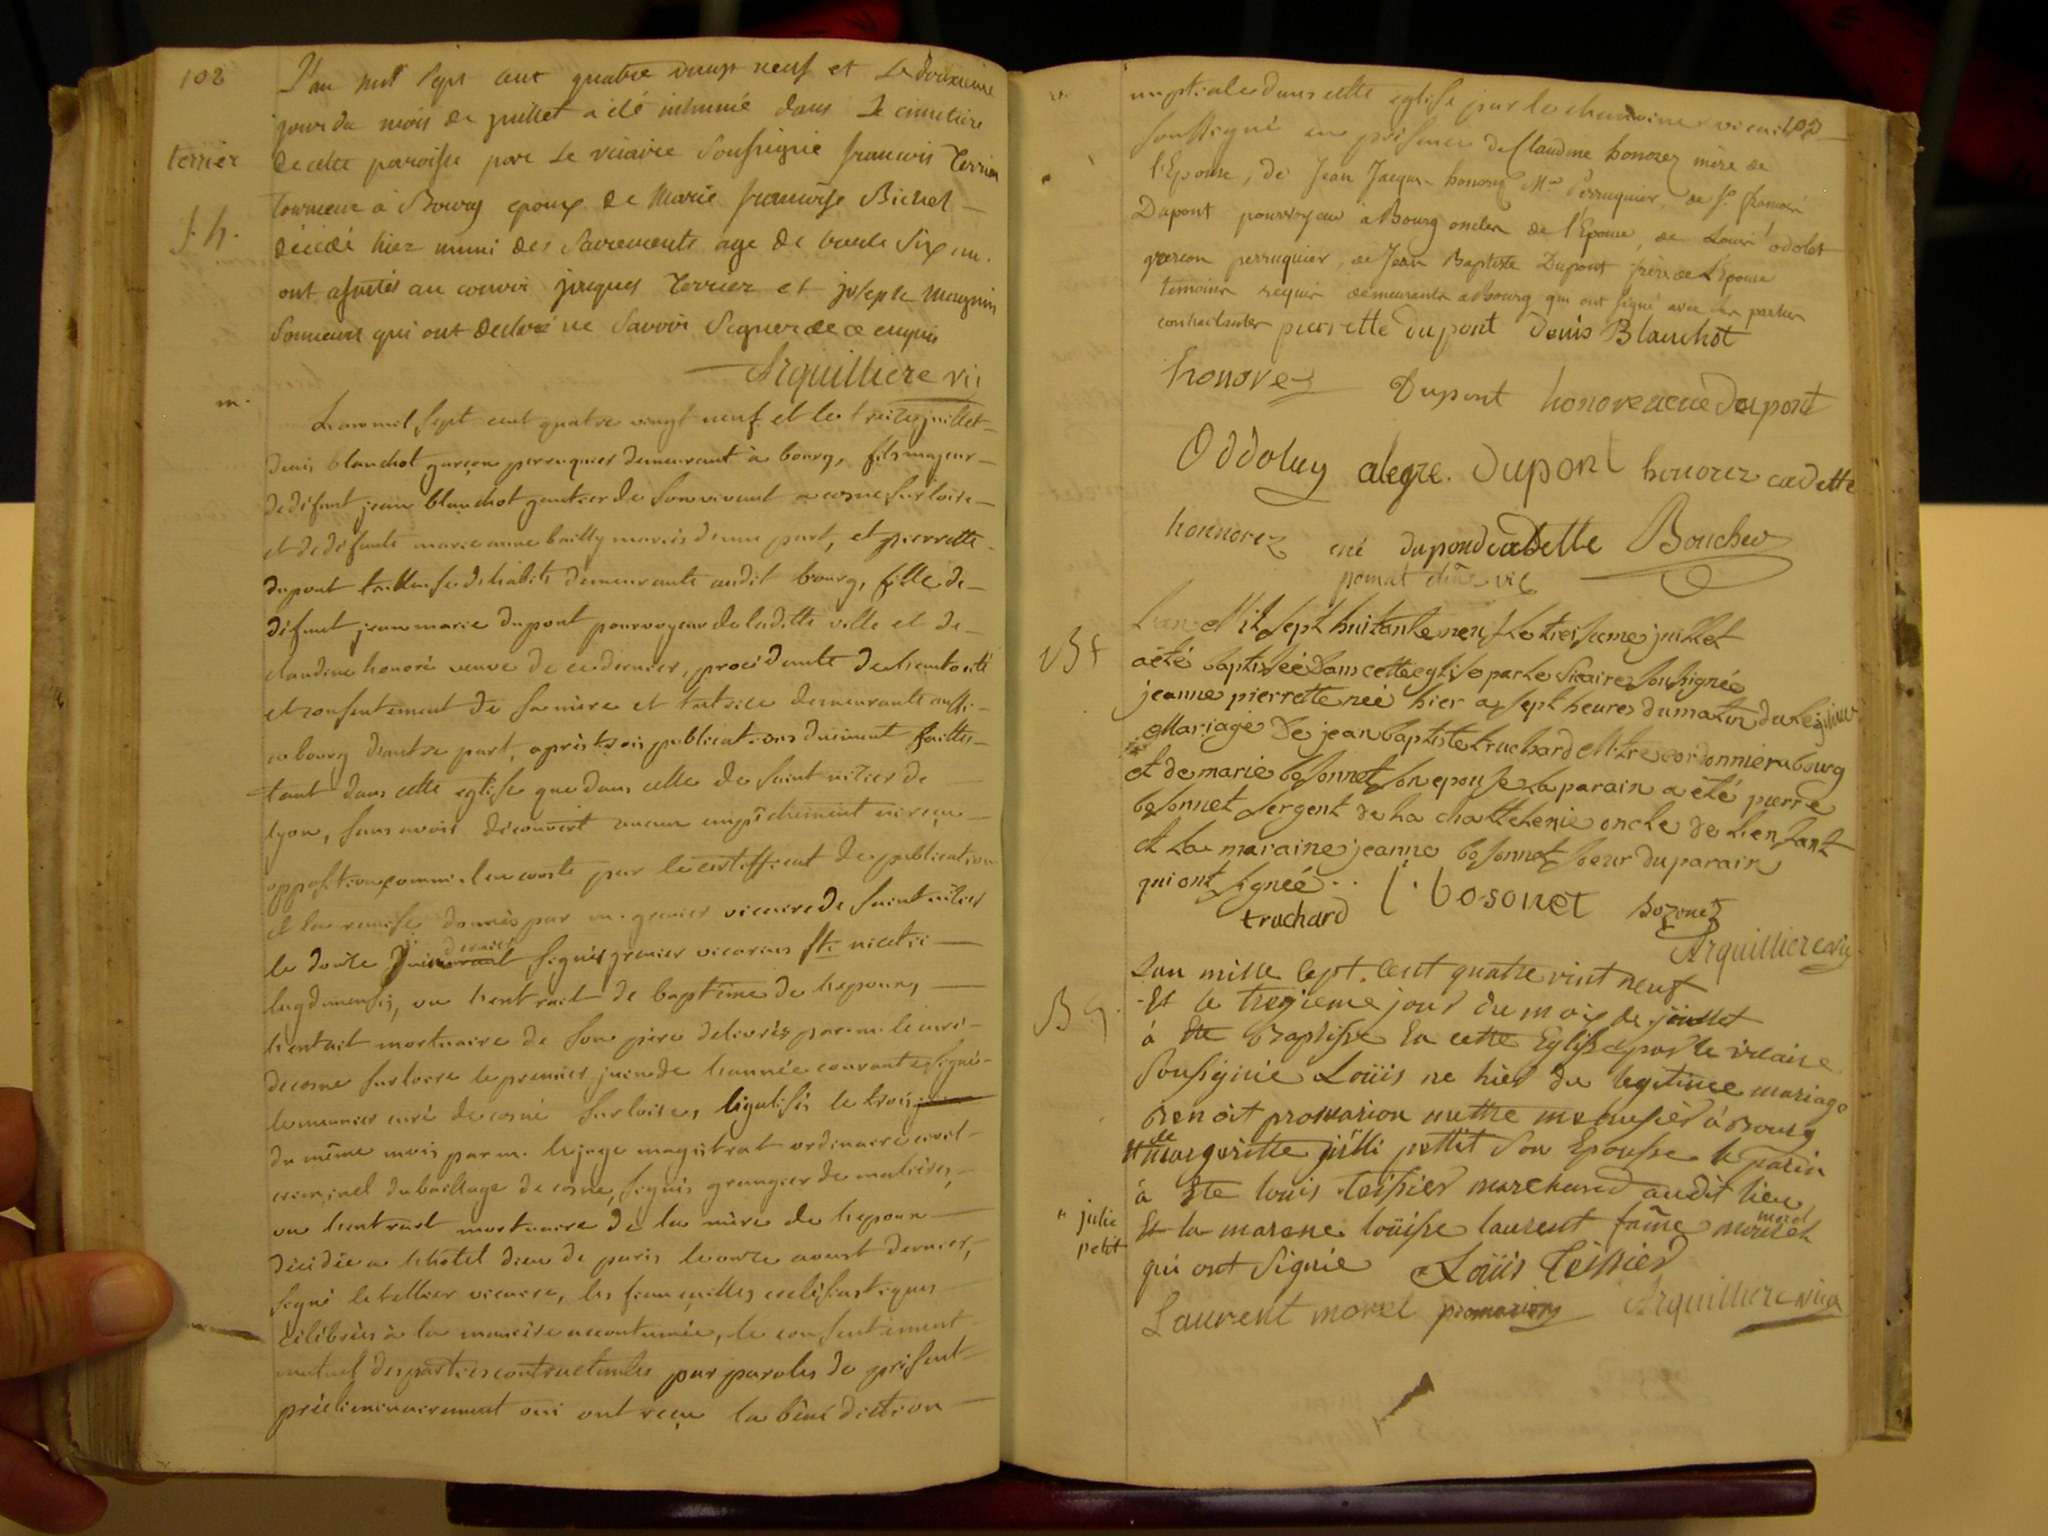 102
L'an mil sept cent quatre vingt neuf et Le douxieme
jour du mois de juillet a été inhumé dans Le cimetiere
terrier
de cette paroisse par Le vicaire Soussigné francois Terrier
tourneur à Bourg epoux de Marie francoise Bichel
f. h.
décédé hier muni des Sacrements age de trente Six an.
ont assistés au convoi jacques Terrier et joseph magnin
Sonneurs qui ont declaré ne Savoir Signer de ce enquis
Arquilliere vic
m.
L'an mil sept cent quatre vingt neuf et le treize juillet
denis blanchot garçon perruquier demeurant à bourg, fils majeur
de défunt jean blanchot gantier de son vivant a cosne sur loire
et de défunte marie anne bailly mariés d'une part, et pierrette
dupont tailleuse d'habits demeurante audit bourg, fille de
défunt jean marie dupont pourvoyeur de laditte ville et de
claudine honoré veuve de ce dernier, procédante de l'autorité
et consentement de sa mère et tutrice demeurante aussi
a bourg d'autre part, après trois publications duement faittes
tant dans cette eglise que dans celle de saint nizier de
lyon, sans avoir découvert aucun empêchement ni reçu
opposition comme il en conste par le certifficat de publication
et la remise donnés par m. grenier vicaire de saint nizier
le douze dernier signés grenier vicarius sti nicetii
lugdunensis, vu l'extrait de baptême de l'epoux,
l'extrait mortuaire de son père delivrés par m. le curé
de cosne sur loire le premier juin de l'année courante signé
lemeunier curé de cosne sur loire, légalisés le trois
du même mois par m. le juge magistrat ordinaire civil
criminel du baillage de cosne, signés grangier de
vu l'extrait mortuaire de la mère de l'epoux
décédée a l'hotel dieu de paris le onze aoust dernier,
signé letellier vicaire, les fiançailles ecclésiastiques
célébrées à la manière accoutumée, le consentement
mutuel des parties contractantes par paroles de présent
préliminairement oui ont reçu la bénédiction
nuptiale dans cette eglise par le chanoine vicaire
soussigné en présence de Claudine honorez mère de
l'Epouse, de Jean Jacques honorez Me Perruquier, de
Dupont pourvoyeur à Bourg oncles de l'Epouse, de Louis odolet
garcon perruquier, de Jean Baptiste Dupont frère de L'Epouse
temoins requis demeurants a Bourg qui ont signé avec les parties
contractantes pierrette dupont denis Blanchot
honorez Dupont honore dupont
Oddoley alegre. Dupont honorez cadette
honnorez né dupond cadette Bouchev
vic
Bt
L'an Mil Sept huitante neuf Le treisieme juillet
a été baptisée Dans cette eglise par Le Vicaire Soussignée
jeanne pierrette née hier a Sept heures du matin du Légitime
Mariage De jean baptiste truchard Mtre cordonnier a bourg
et de marie bosonnet son epouse Le parain a été pierre
bosonnet Sergent de La chattelenie oncle de L'enfant
et La maraine jeanne bosonnet Soeur du parain
qui ont Signée..
truchard bosonet Bozonet
Arquilliere vic
B
L'an mille sept cent quatre vint neuf
Et le tregieme jour du mois de jouillet
à Ete Baptisse En cette Eglisse par le vicaire
Sousignie Louis ne hier du legitime mariage
Benoit promarion mettre menusier à Bourg
et de margueritte jilli pettit Son Epousse le parin
à Ete louis teissier marchand audit lieu
" julie
petit
Et la marene louisse laurent fame morel
qui ont Signie Louis Teissier
Laurent morel promarion Arquilliere vica